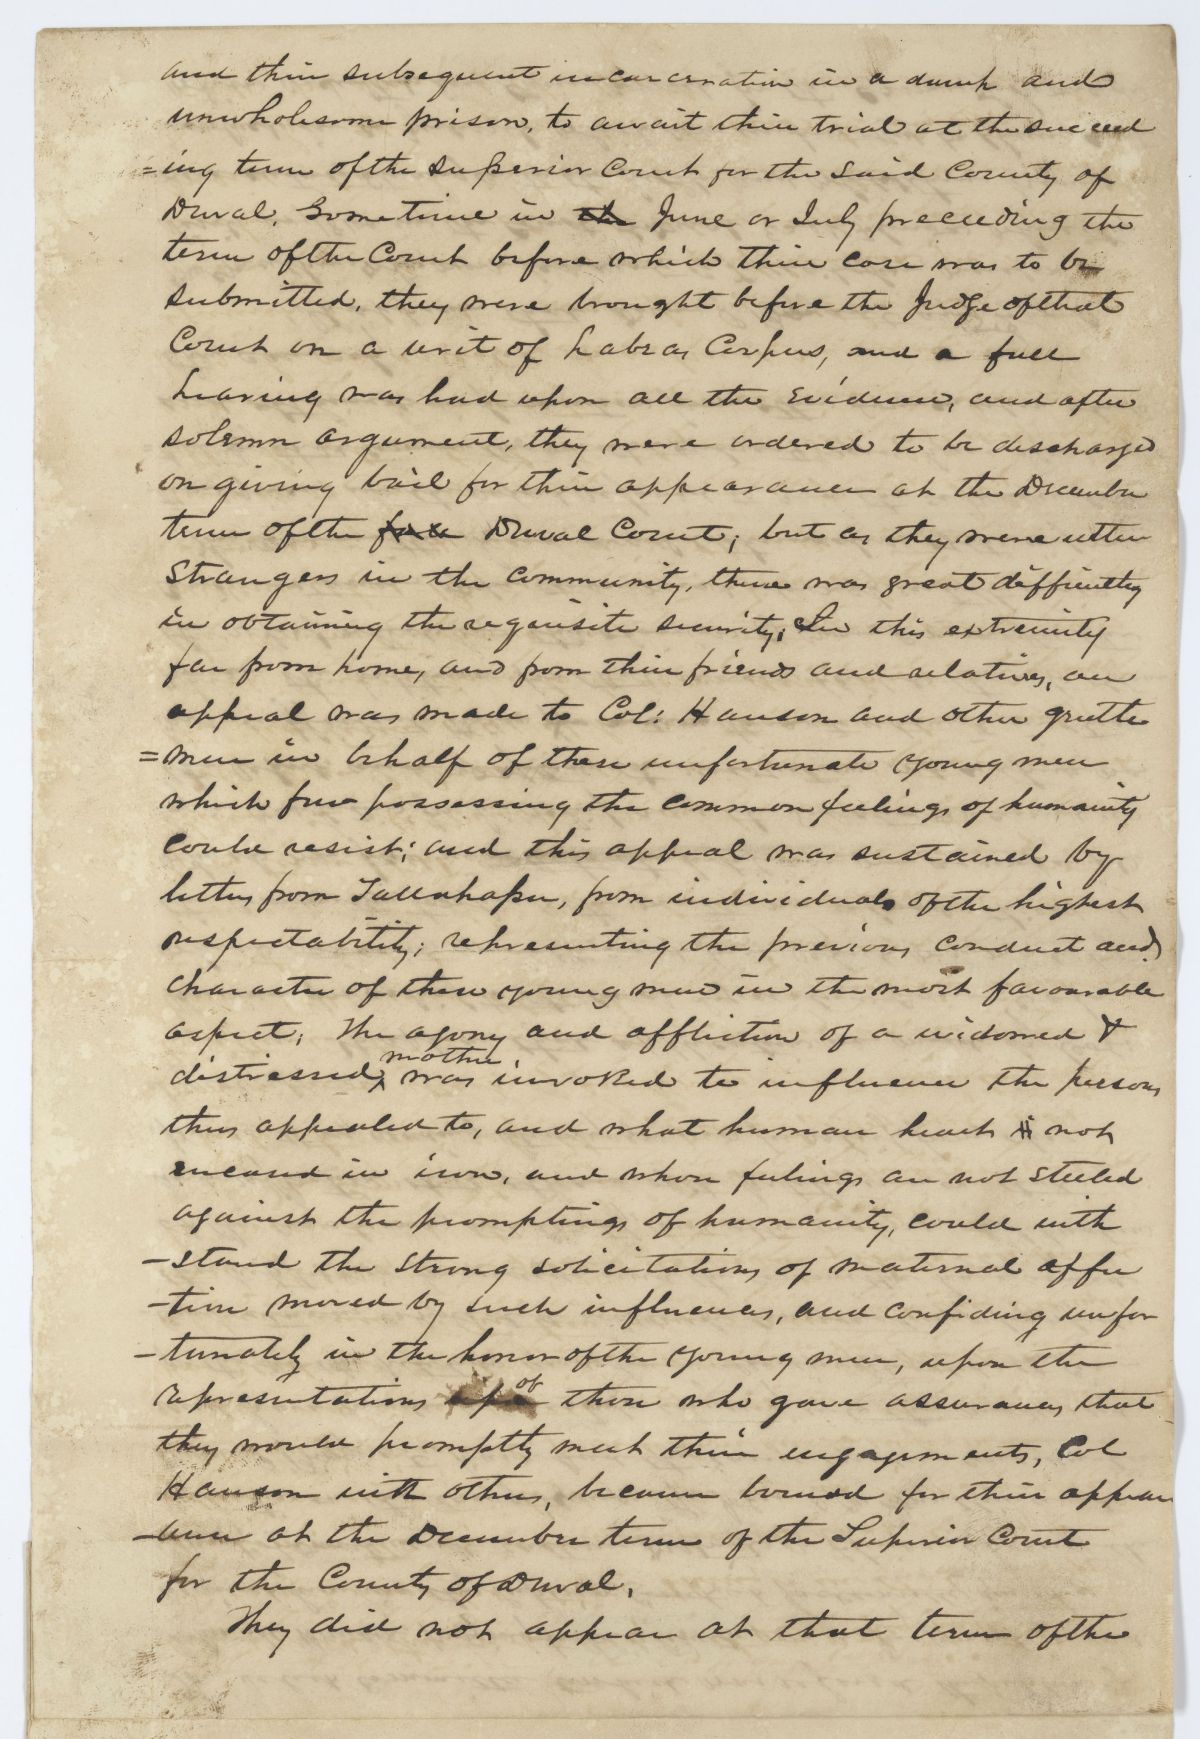 and their subsequent incarceration in a damp and
unwholesome prison, to await their trial at the succeed
=ing term of the Superior Court for the said County of
Duval. Sometime in the June or July preceeding the
term of the Court before which their case was to be
submitted, they were brought before the Judge of that
Court on a writ of habeas Corpus, and a full
hearing was had upon all the Evidence, and after
solemn argument, they were ordered to be discharged
on giving bail for their appearance at the December
term of the Duval Court; but as they were utter
Strangers in the community, there was great difficulty
in obtaining the requisite security; In this extremity
far from home, and from their friends and relatives, an
appeal was made to Col: Hanson and other gentle
=men in behalf of these unfortunate young men
which few possessing the common feelings of humanity
could resist; and this appeal was sustained by
letters from Tallahassee, from individuals of the highest
respectability; representing the previous conduct and
character of these young men in the most favourable
aspect; The agony and affliction of a widowed &
distressed mother was invoked to influence the persons
thus appealed to, and what human heart is not
encased in iron, and whose feelings are not steeled
against the promptings of humanity, could with
-stand the strong solicitations of maternal affec
-tion moved by such influences, and confiding unfor
-tunately in the honor of the young men, upon the
representations of those who gave assurances that
they would promptly meet their engagements, Col
Hanson with others, became bound for their appear
-ance at the December term of the Superior Court
for the County of Duval.
They did not appear at that term of the